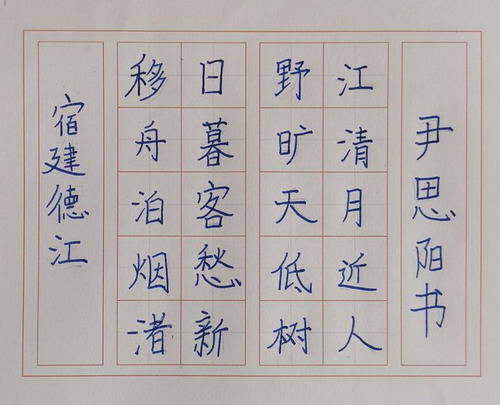 宿建德江
移舟泊烟渚
日暮客愁新
野旷天低树
江清月近人
尹思阳书